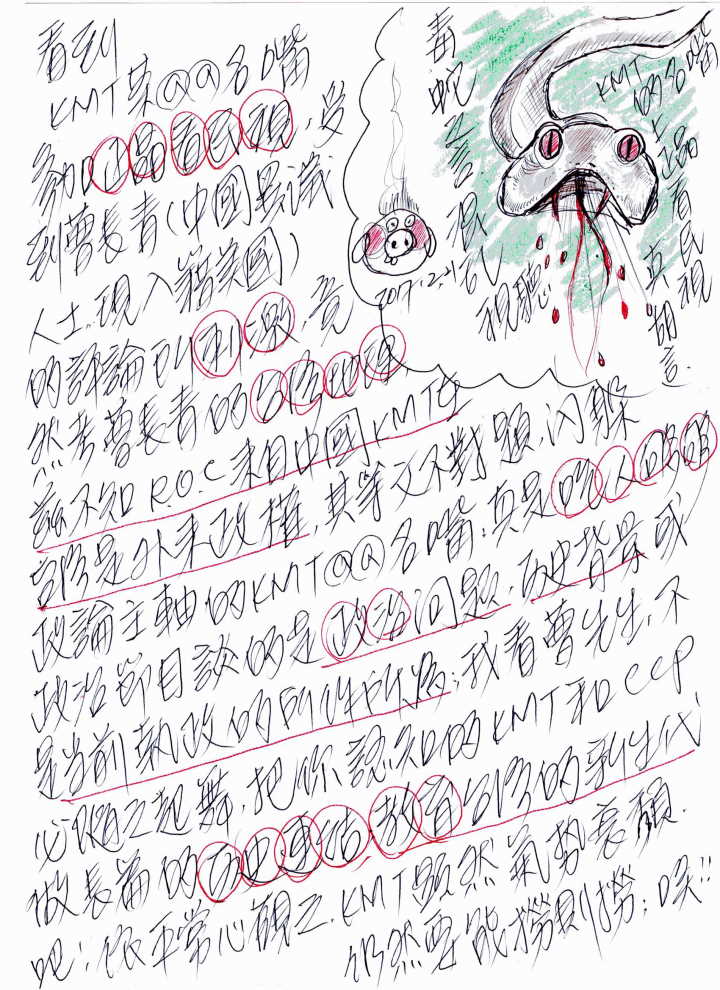 看到
KMT某@@名嘴
參加正晶看民視,受
到曹長青(中國異識
人士,現入籍美國)
的評論所刺激,竟
然考曹長青的台灣地理
並不知R.O.C來自中國KMT在
台灣是外來政權,其等文不對題,閃躲
政論主軸的KMT@@名嘴;真是
政治節目談的是政治问題,历史背景或
是当前執政的所作所為;我看曹先生,不
必隨之起舞,把你認知的KMT和CCP
做長篇的历史連结教育台灣的新生代
吧!依平常心觀之,KMT顯然氣势衰頹.
仍然要能撈則撈;唉!!
毒蛇之言
視聽!
2017.2.21
KMT的名嘴
上正晶看民視
真胡言.